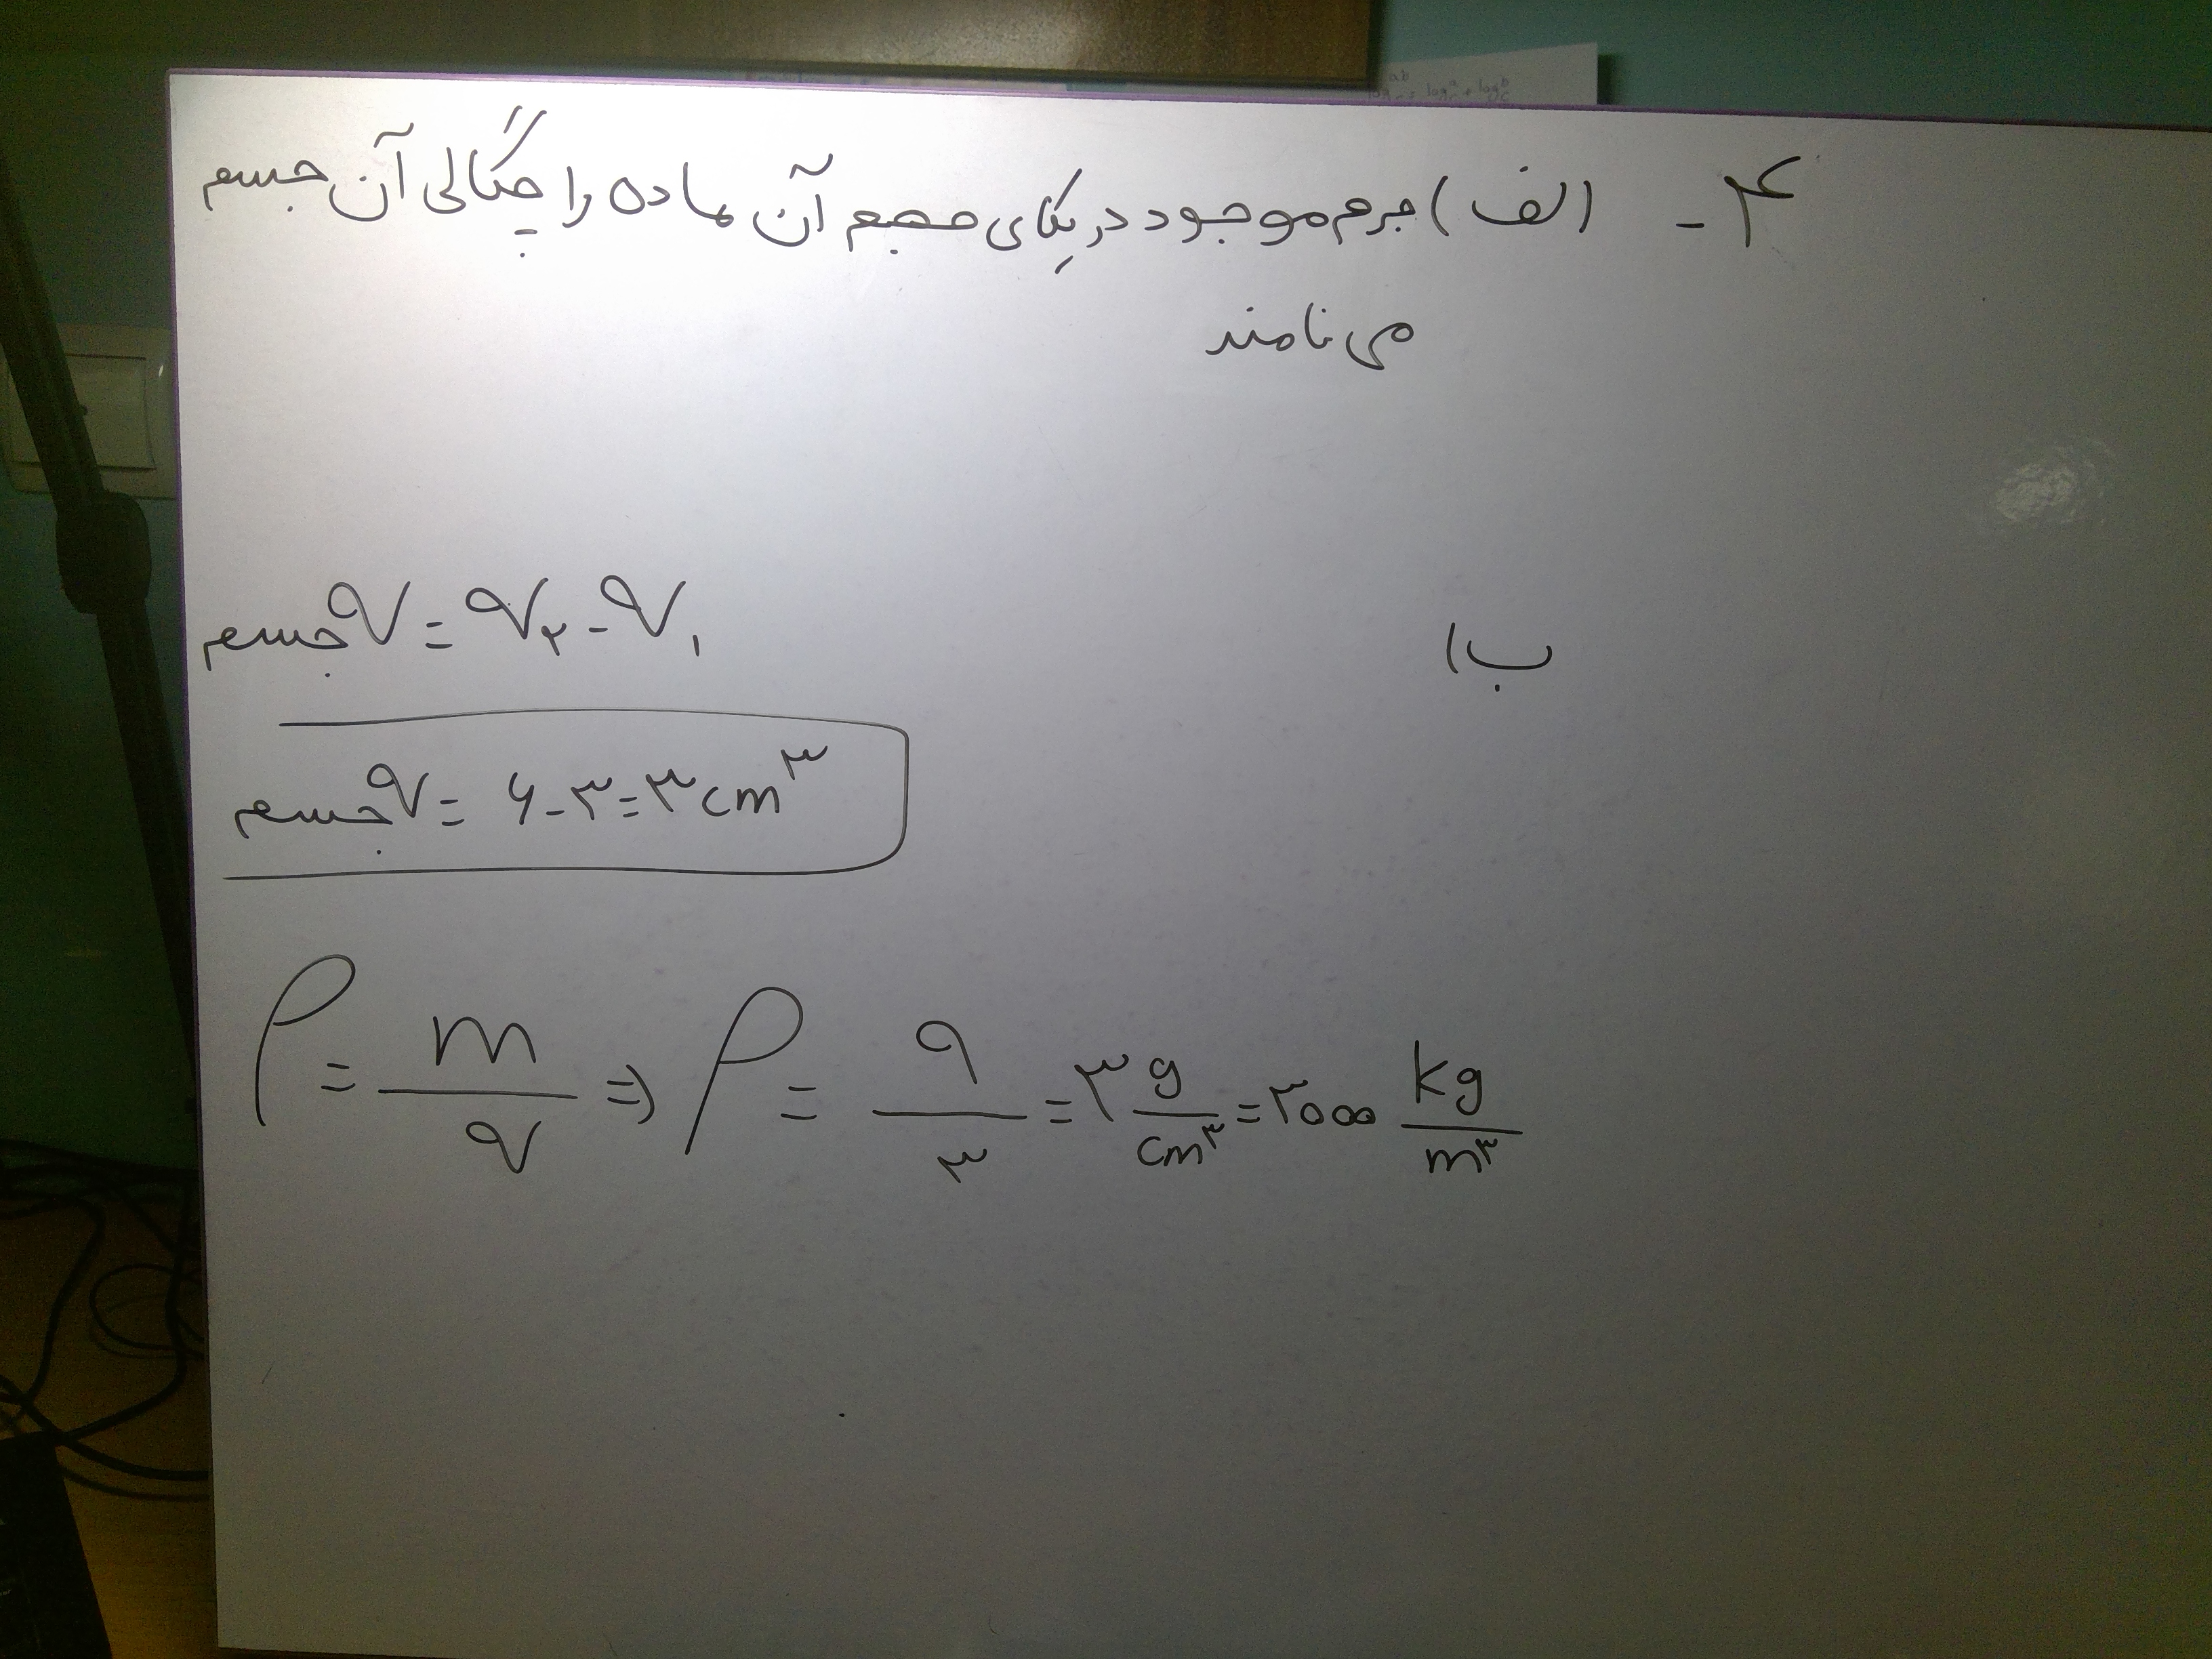 ۴- الف) جرم موجود در یکای حجم آن ماده را چگالی آن جسم
می نامند
ب)
V جسم = V₂ - V₁
V جسم = ۶-۳=۳ cm^۳
ρ = m/V ⇒ ρ = ۹/۳ = ۳ g/cm^۳ = ۳۰۰۰ kg/m^۳